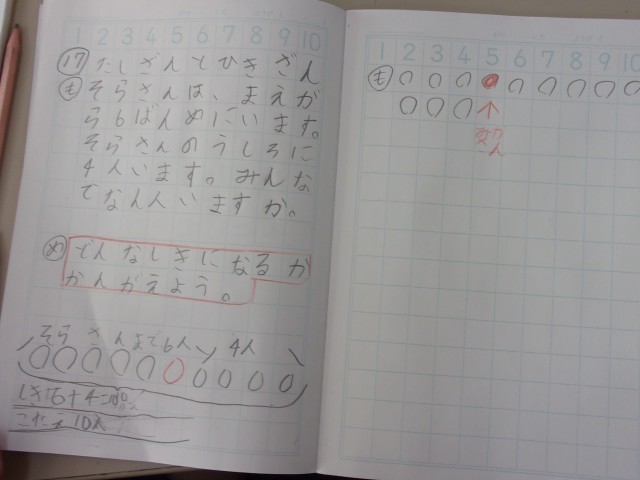 1 2 3 4 5 6 7 8 9 10
⑰ たしざんとひきざん
も そらさんは、まえが
ら6ばんめにいます。
そらさんのうしろに
4人います。みんな
でなん人いますか。
め どんなしきになるか
かんがえよう。
そらさんまで6人 4人
しき 6+4=10
こたえ 10人
1 2 3 4 5 6 7 8 9 10
も